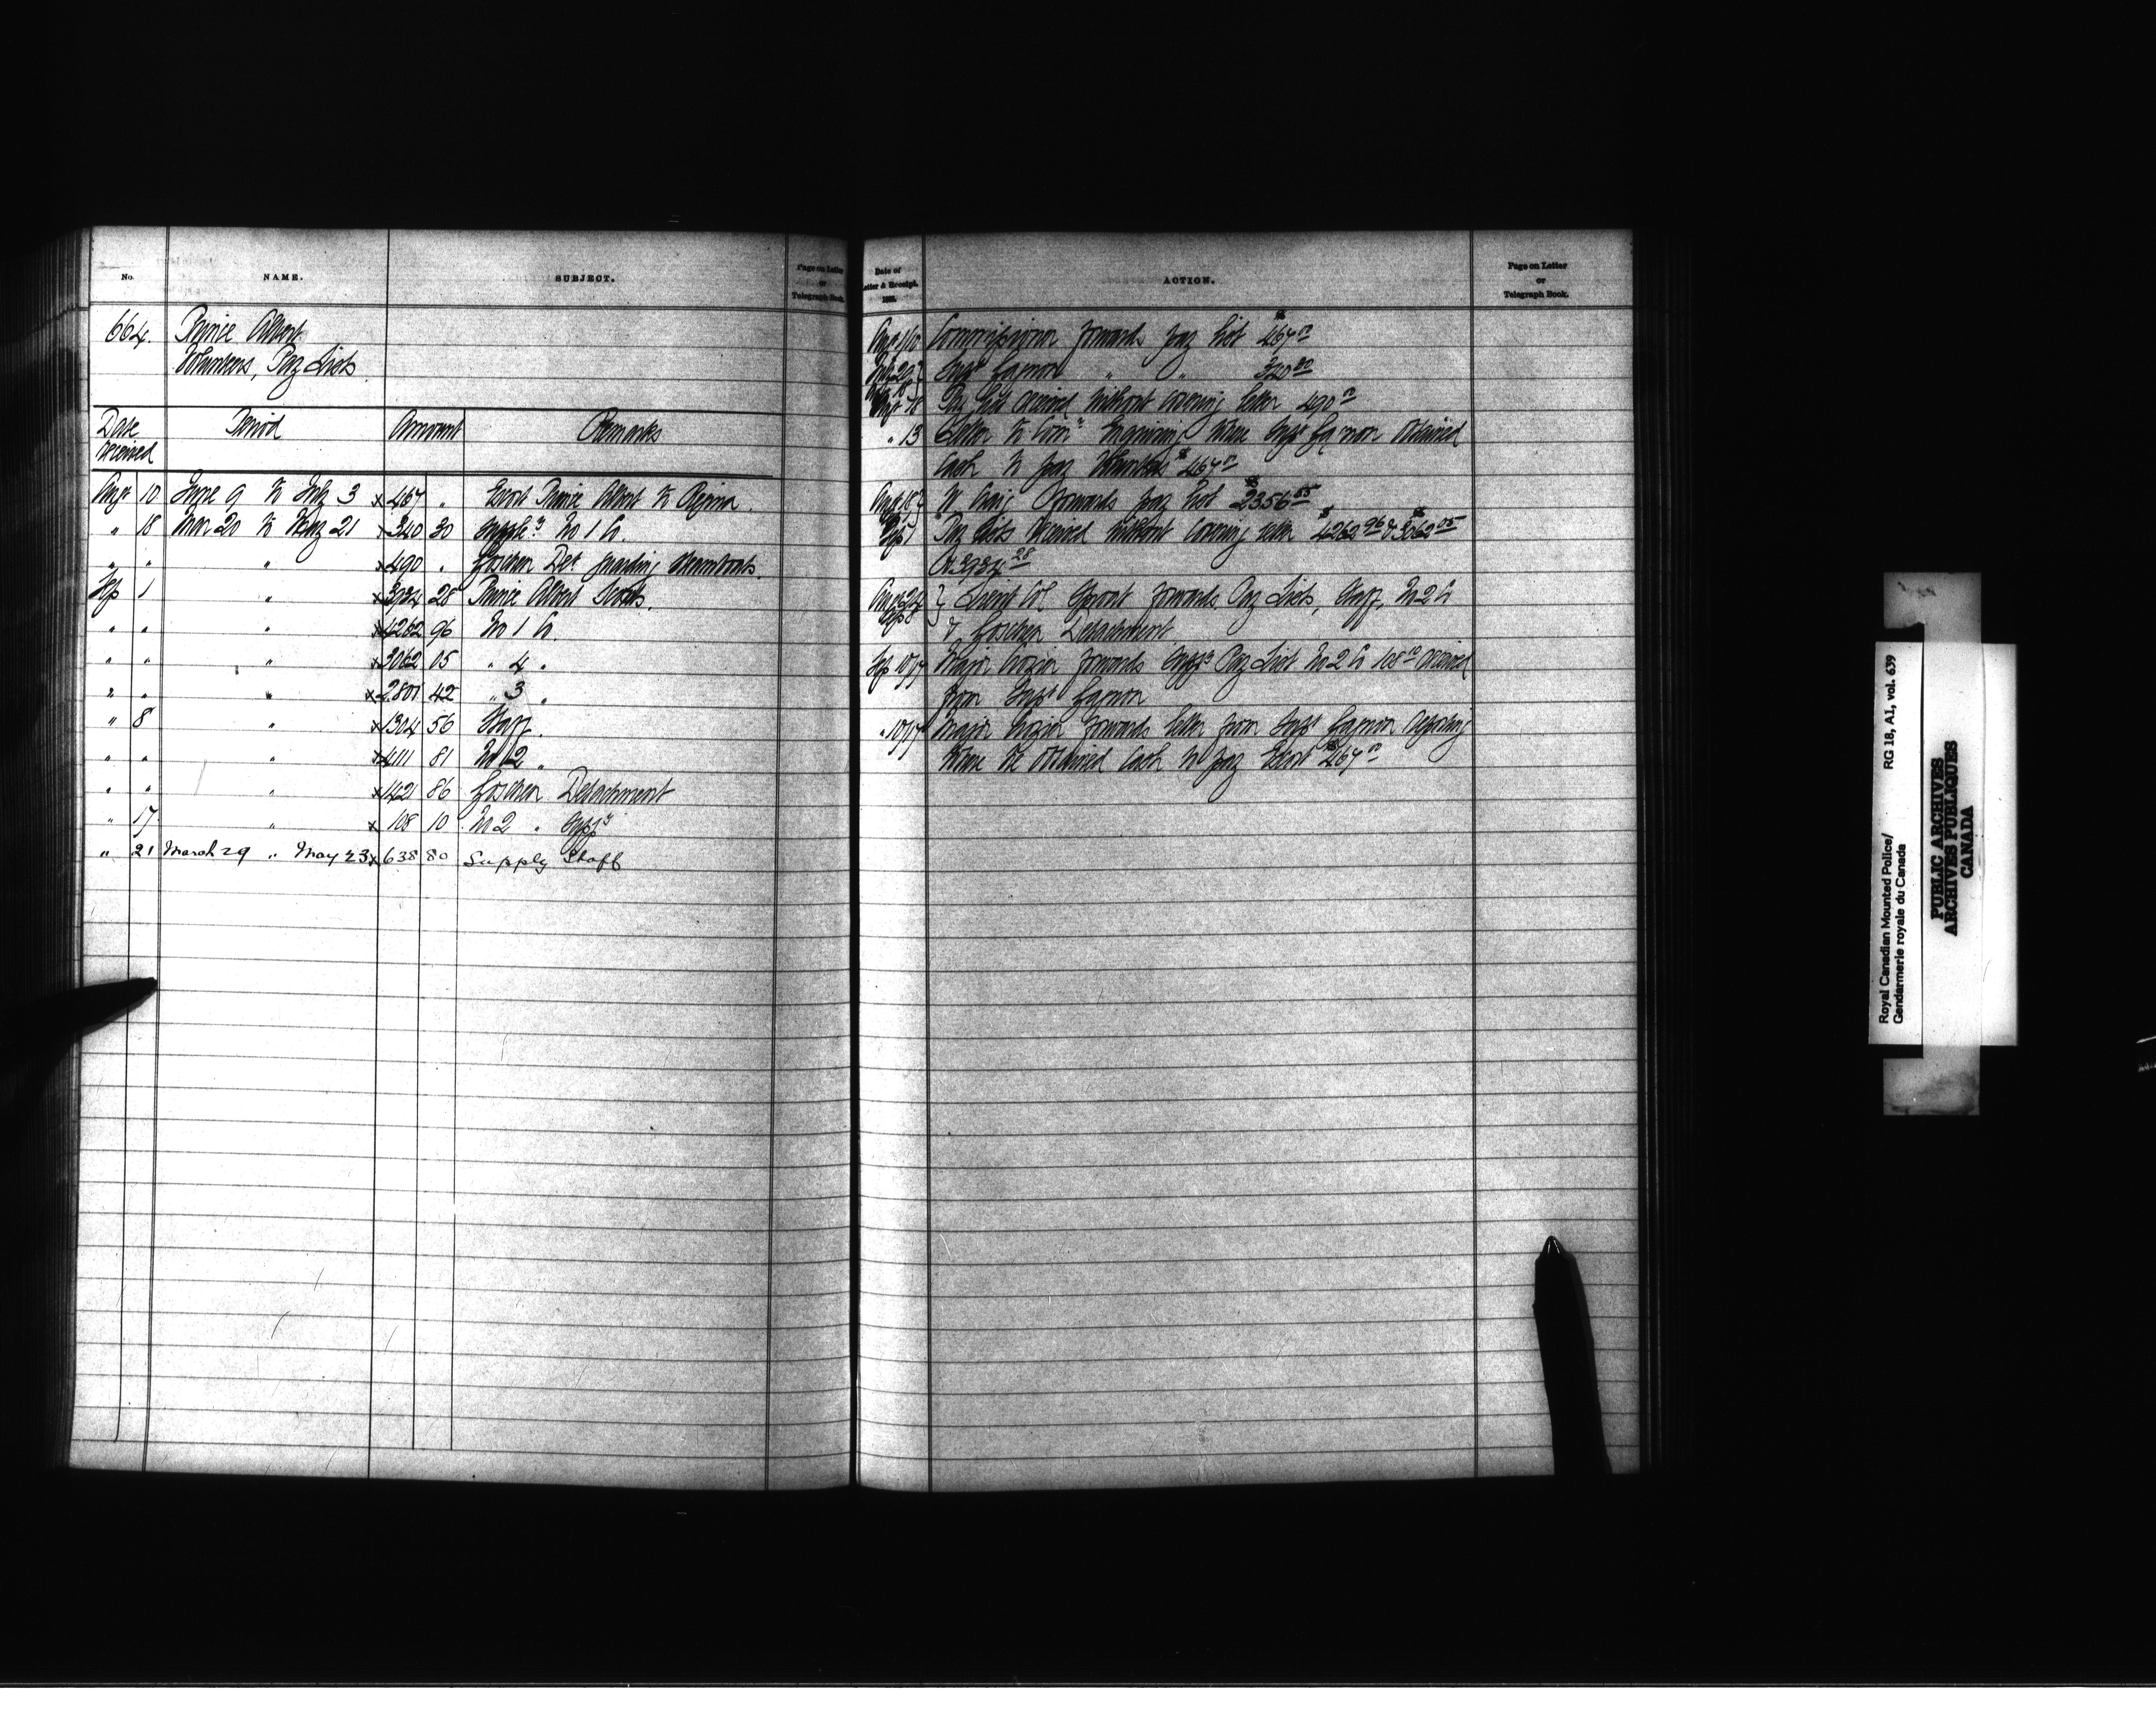 No. NAME. SUBJECT. Page on Letter or Telegraph Book.
664. Prince Albert
Volunteers, Pay Lists
Date received Period Amount Remarks
Aug 10 June 9 to July 3 x 467 " Escort Prince Albert to Regina.
" 18 Mar 20 to May 21 x 340 30 Supply No 1 Co.
" " " x 490 " Goschen Det guarding steamboats.
Sep 1 " x 3934 28 Prince Albert Scouts.
" " " x 4262 96 No 1 Co.
" " " x 3062 05 " 4 "
" " " x 2801 42 " 3 "
" 8 " x 1304 56 Staff.
" " " x 4111 81 No 2 "
" " " x 1421 86 Goschen Detachment
" 17 " x 108 10 No 2 " Suppy
" 21 March 29 " May 23 x 638 80 Supply Staff
Date of Letter & Receipt. 1885. ACTION. Page on Letter or Telegraph Book.
Aug 1/10 Commissioner forwards pay list $467.00
Insp Gagnon " " 340 30
Sept 18 Pay list received without covering letter 490 00
" 13 Letter to Com enquiring where Insp Gagnon obtained
cash to pay Volunteers $467.00
Aug 18 W Craig forwards pay list $2356
Sep 1 Pay Lists received without covering letter $4262 96 & $3062 05
& 3934 28
Aug 29 Sep 8 } Lieut Col Sproat forwards Pay Lists, Staff, No 2 Co
& Goschen Detachment
Sep 10/17 Major Crozier forwards Supp Pay List No 2 Co 108 10 received
from Insp Gagnon
" 10/17 Major Crozier forwards letter from Insp Gagnon reporting
where he obtained cash to pay Escort $467 00
Royal Canadian Mounted Police/ RG 18, A1, vol. 639
Gendarmerie royale du Canada
PUBLIC ARCHIVES
ARCHIVES PUBLIQUES
CANADA